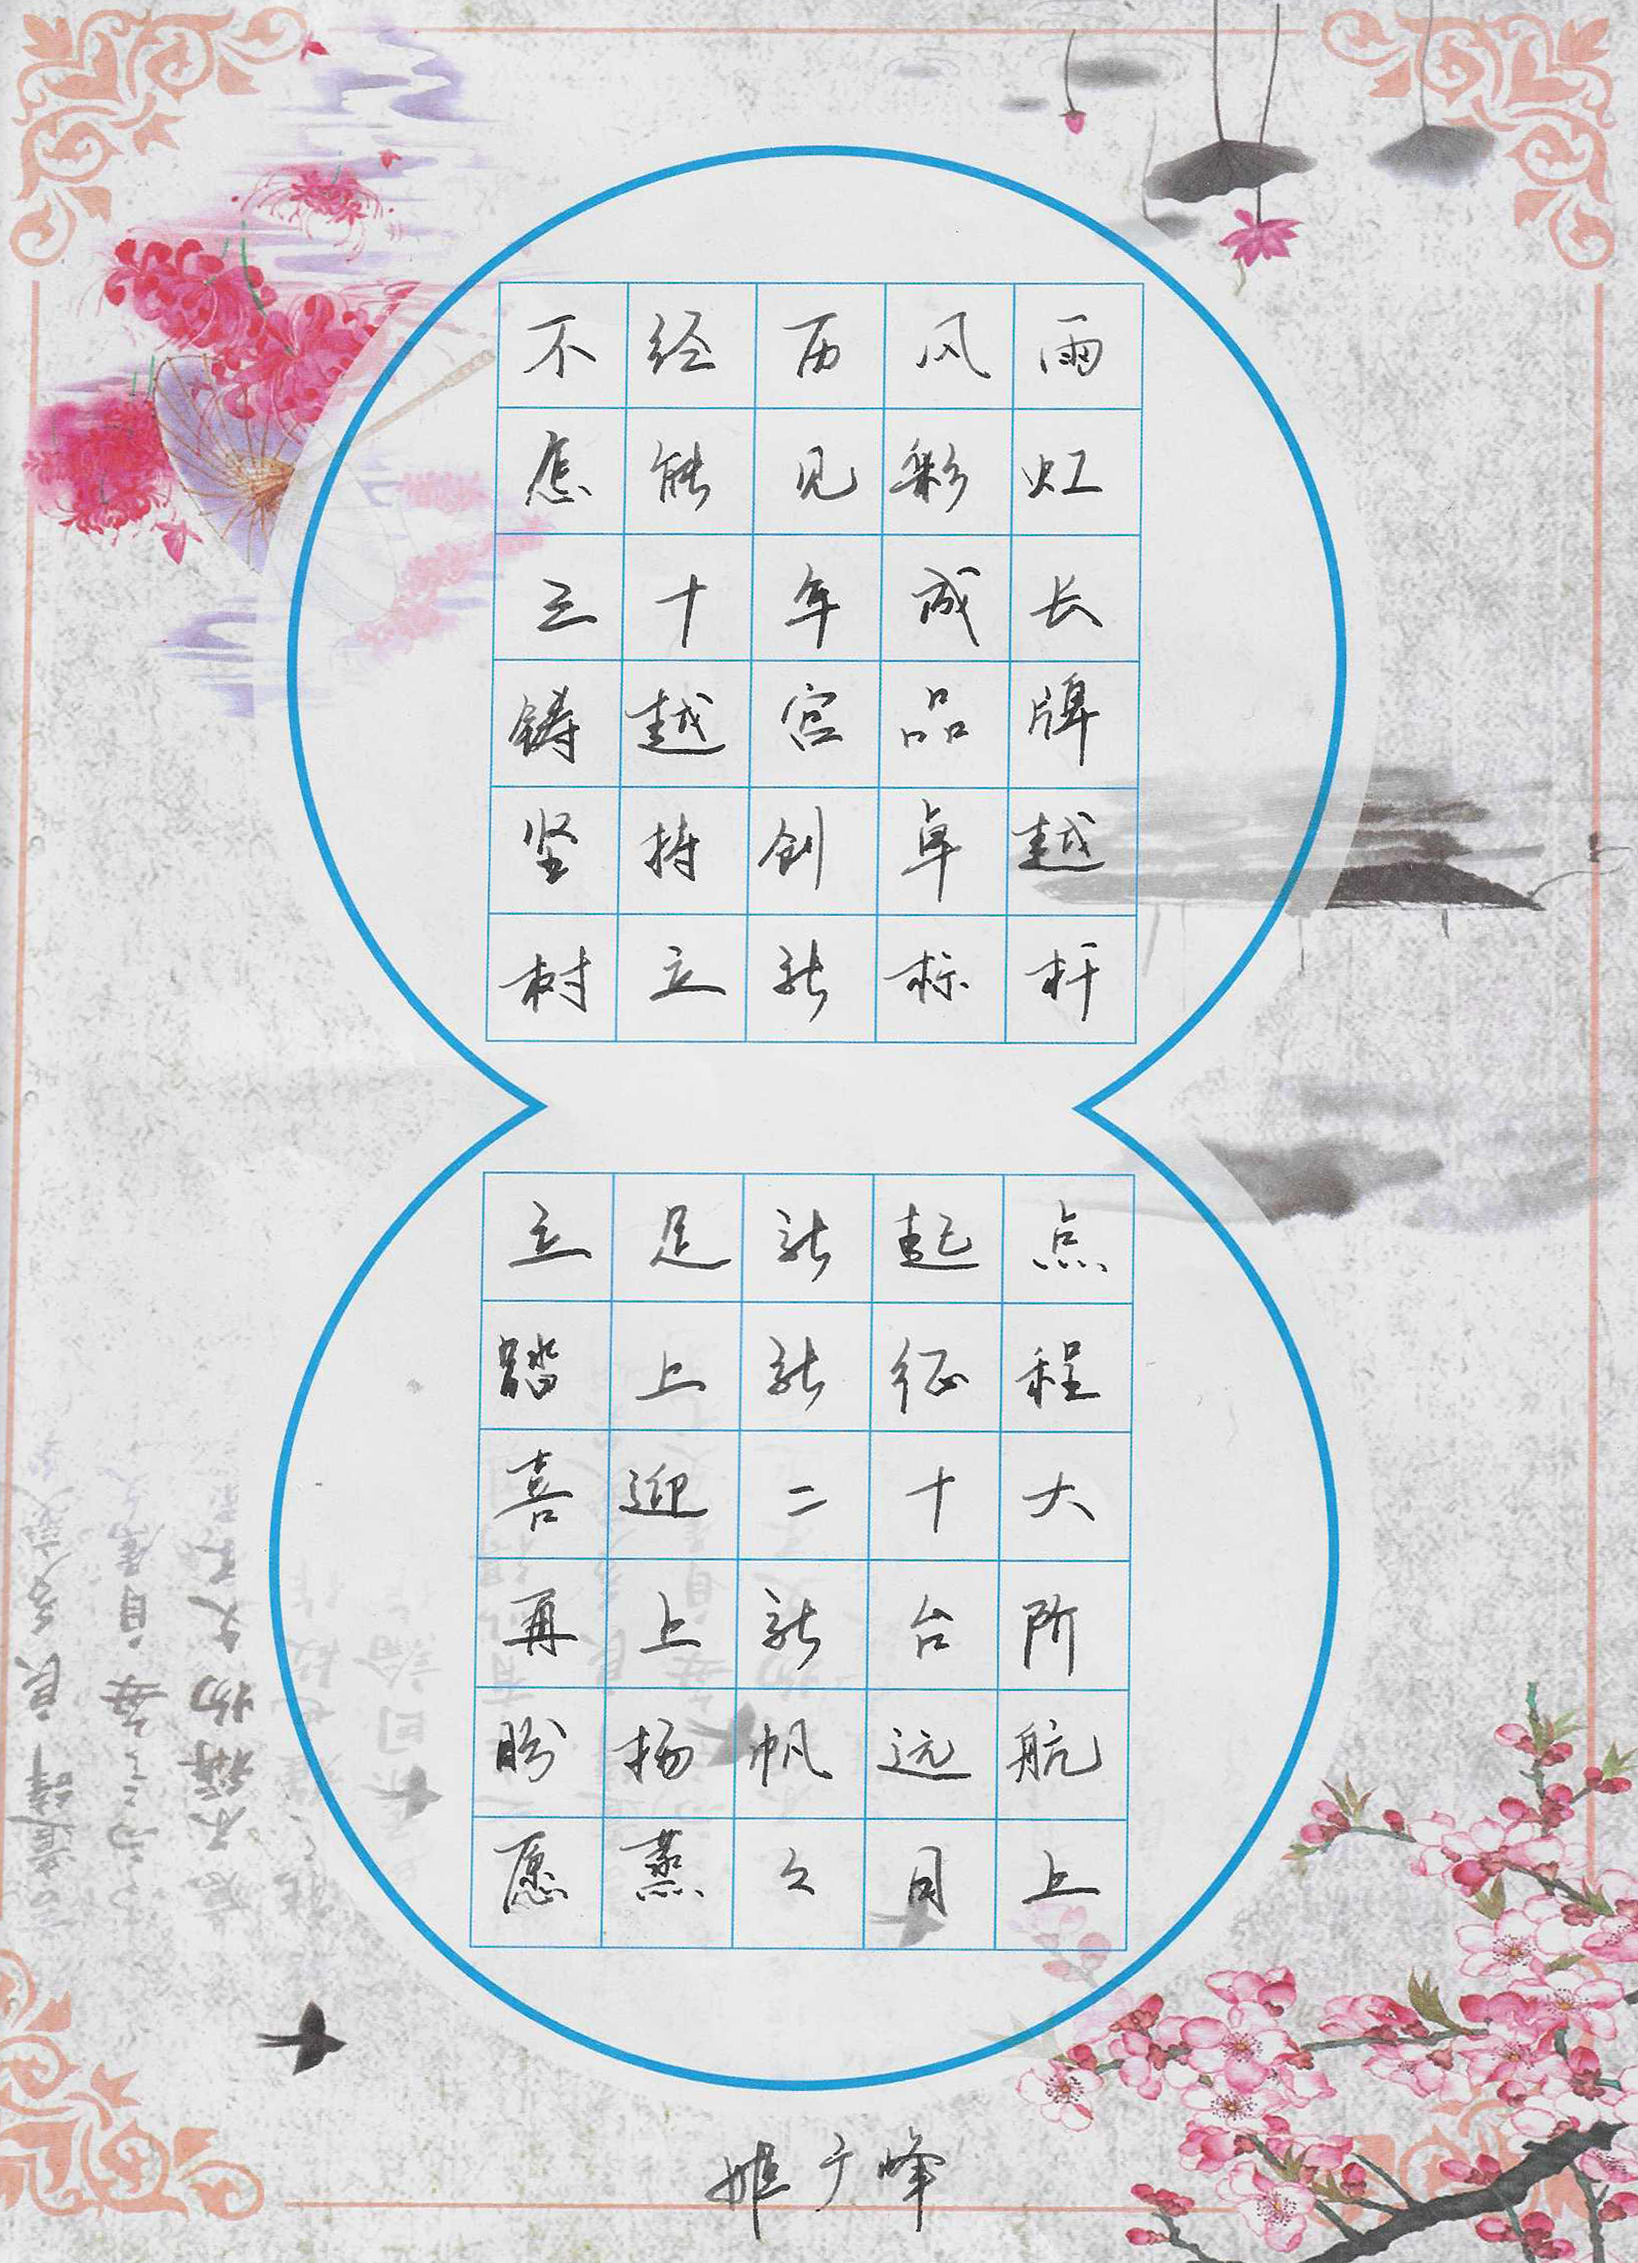 不经历风雨
怎能见彩虹
三十年成长
铸越宫品牌
坚持创卓越
树立新标杆
立足新起点
踏上新征程
喜迎二十大
再上新台阶
盼扬帆远航
愿蒸蒸日上
姬广峰